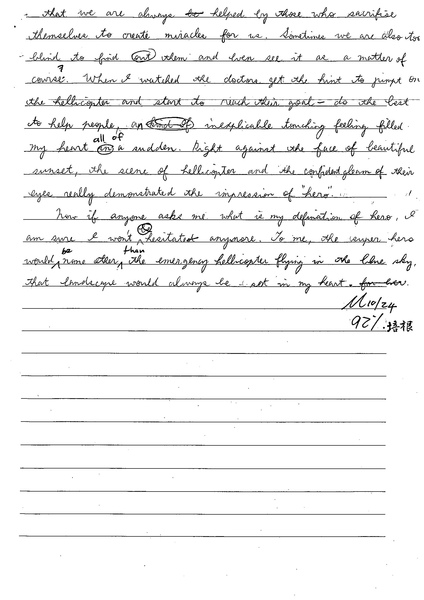 that we are always be helped by those who sacrifice
themselves to create miracles for us. Sometimes we are also too
blind to find out them and even see it as a matter of
course. When I watched the doctors get the hint to jump on
the hellicopter and start to reach their goal - do the best
to help people, an kind of inexplicable touching feeling filled
all of
my heart in a sudden. Right against the face of beautiful
sunset, the scene of hellicopter and the confided gleam of their
eyes really demonstrated the impression of "hero".
Now if anyone asks me what is my defination of hero, I
am sure I won't hesitated anymore. To me, the super hero
be than
would none other the emergency hellicopter flying in the blue sky,
that landscape would always be set in my heart. for ever.
10/24
92%. 培根